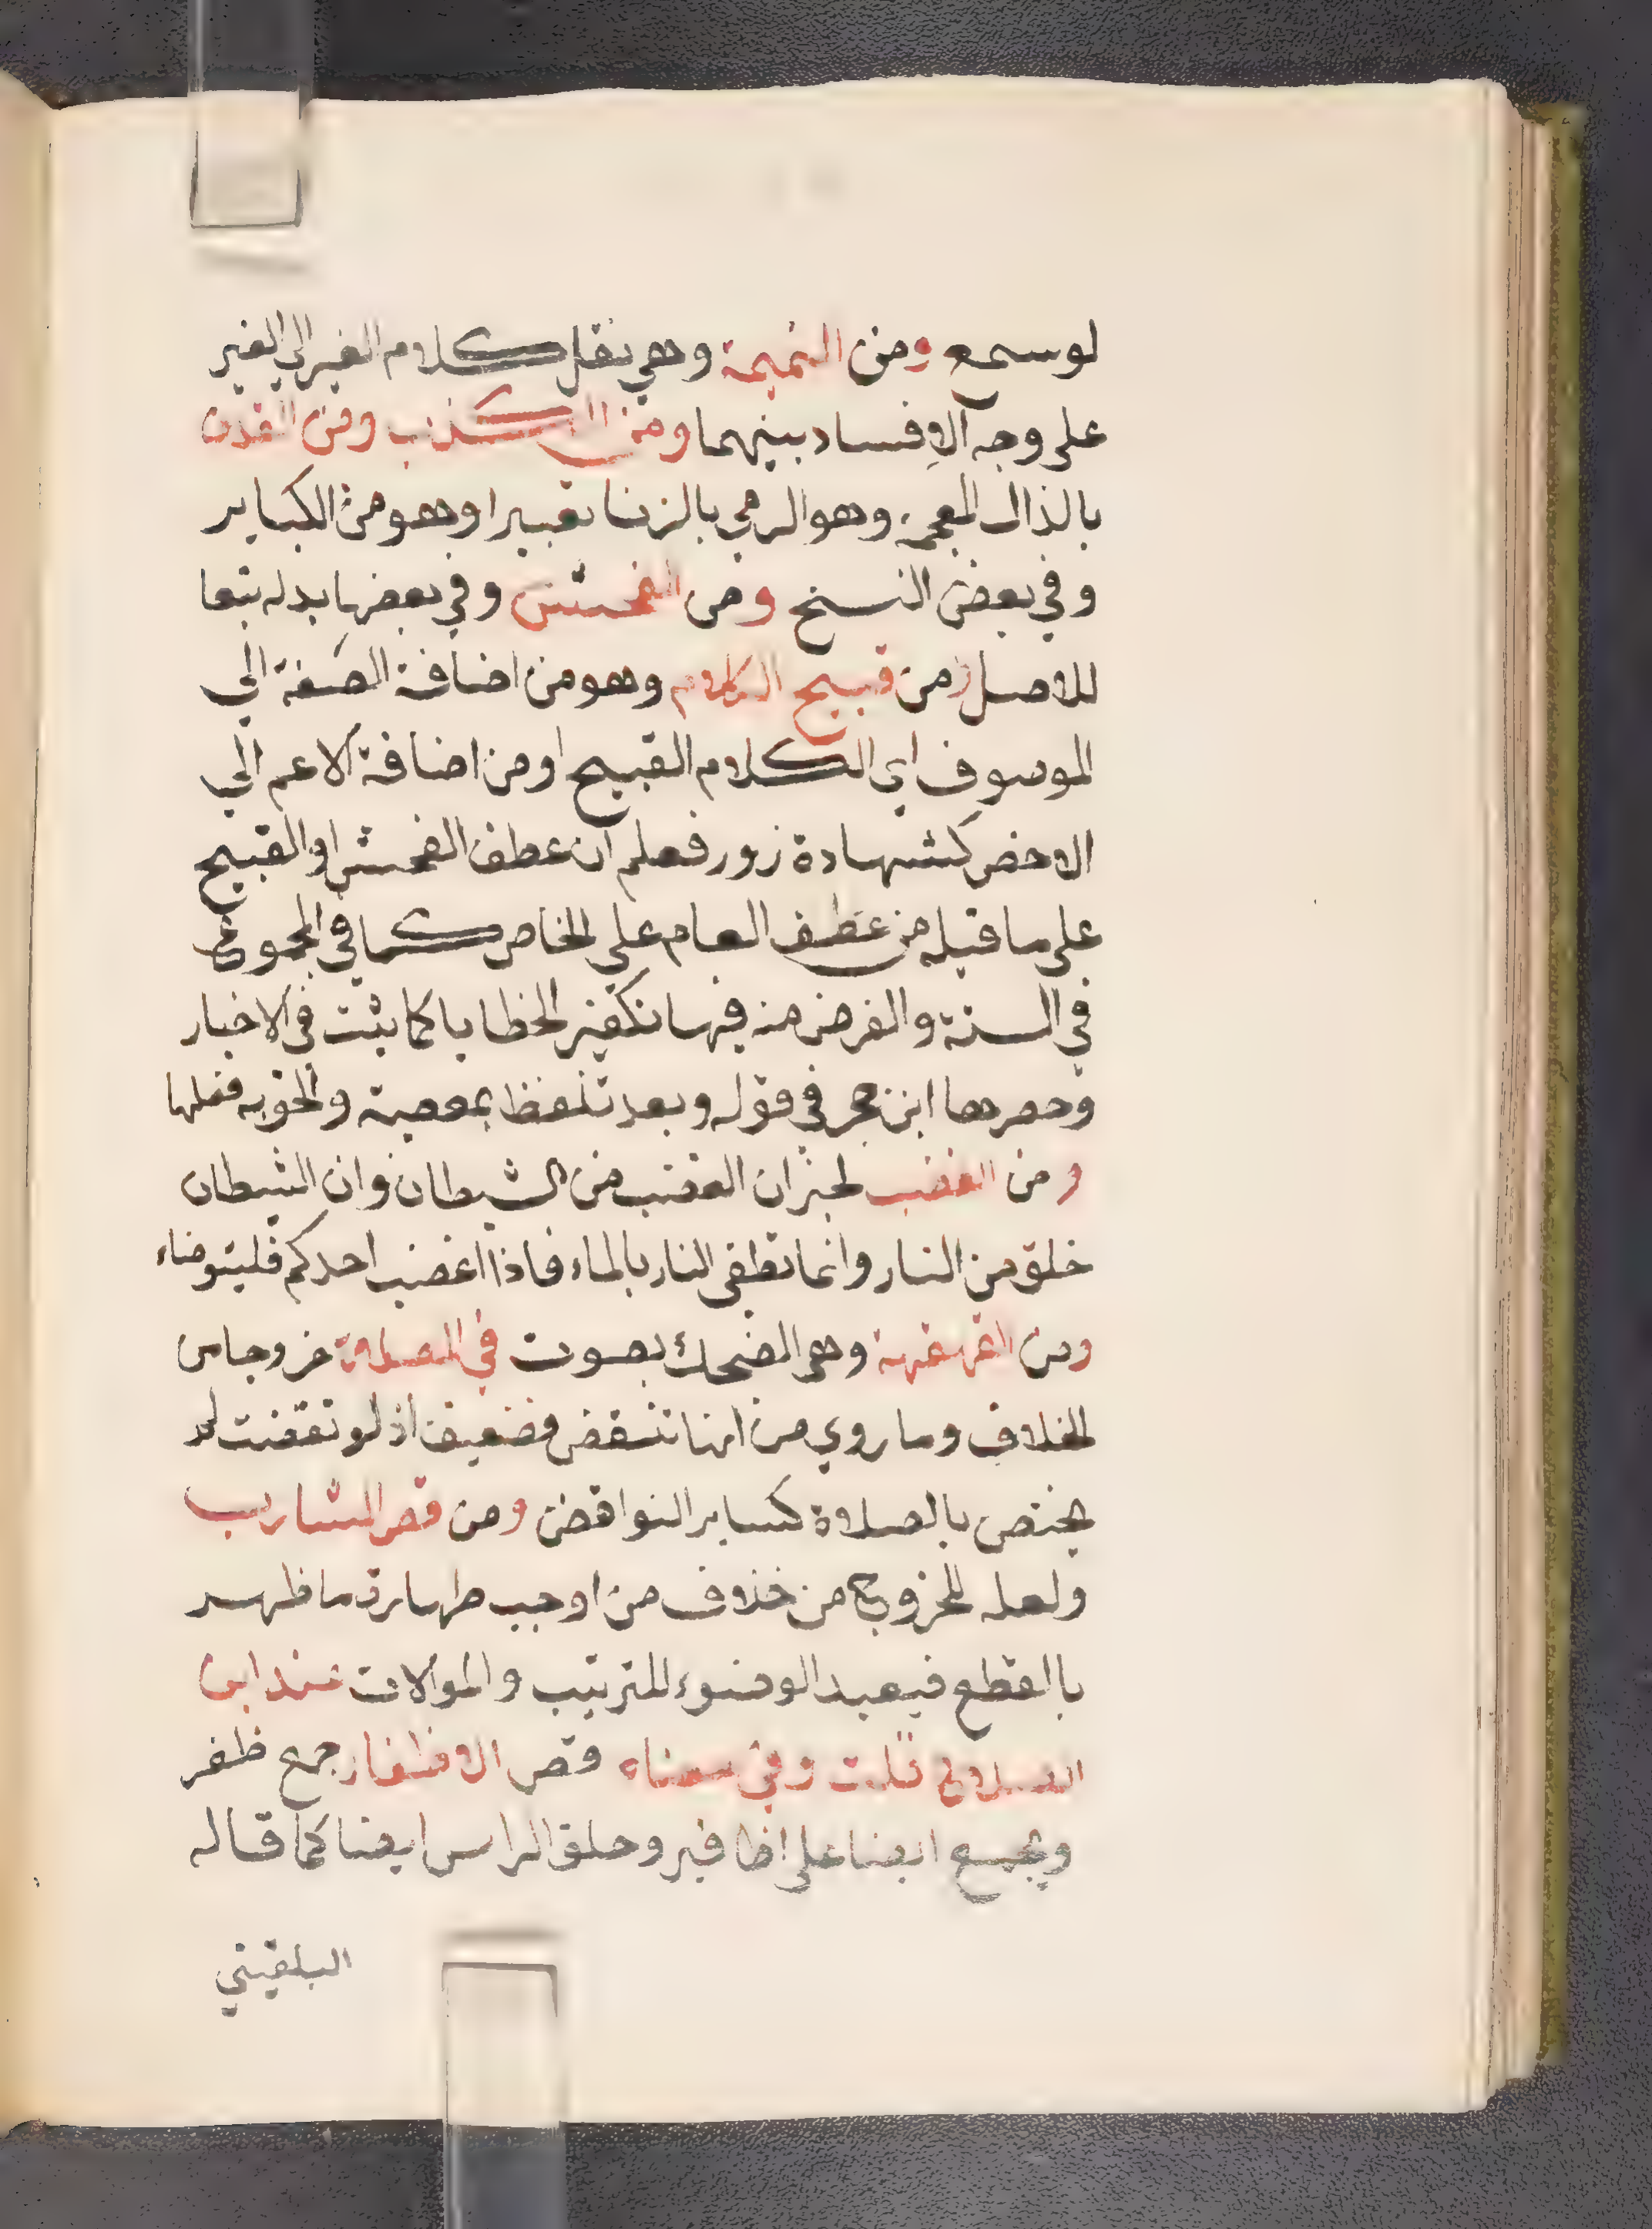 لو سمع ومن النميمة وهي نقل كلام الغير الي الغير
علي وجه الافساد بينهما ومن الكذب ومن القذف
بالذال المعجمه وهو الرمي بالزنا تعييرا وهو من الكباير
وفي بعض النسخ ومن الفحش وفي بعضها بدله تبعا
للاصل من قبيح الكلام وهو من اضافة الصفة الي
الموصوف اي الكلام القبيح او من اضافة الاعم الي
الاخص كشهادة زور فعلم ان عطف الفحش او القبيح
علي ما قبله من عطف العام علي الخاص كما في المجموع
في السنة والغرض منه فيها تكفير الخطايا كما ثبت في الاخبار
وحصرها ابن حجر في قوله وبعد تلفظ بمعصية فعلها
ومن الغضب لخبر ان الغضب من الشيطان وان الشيطان
خلق من النار وانما تطفي النار بالماء فاذا اغضب احدكم فليتوضاء
ومن القهقهة وهي الضحك بصوت في الصلاة خروجا من
الخلاف وما روي من انها تنقض فضعيف اذ لو نقضت لم
يختص بالصلاة كساير النواقض ومن قص الشارب
ولعله للخروج من خلاف من اوجب طهارة ما ظهر
بالقطع فيعيد الوضوء للترتيب والموالات عند ابن
الصلاح قلت وفي معناه قص الاظفار جمع ظفر
ويجمع ايضا علي اظافير وحلق الراس ايضا كما قاله
البلقيني